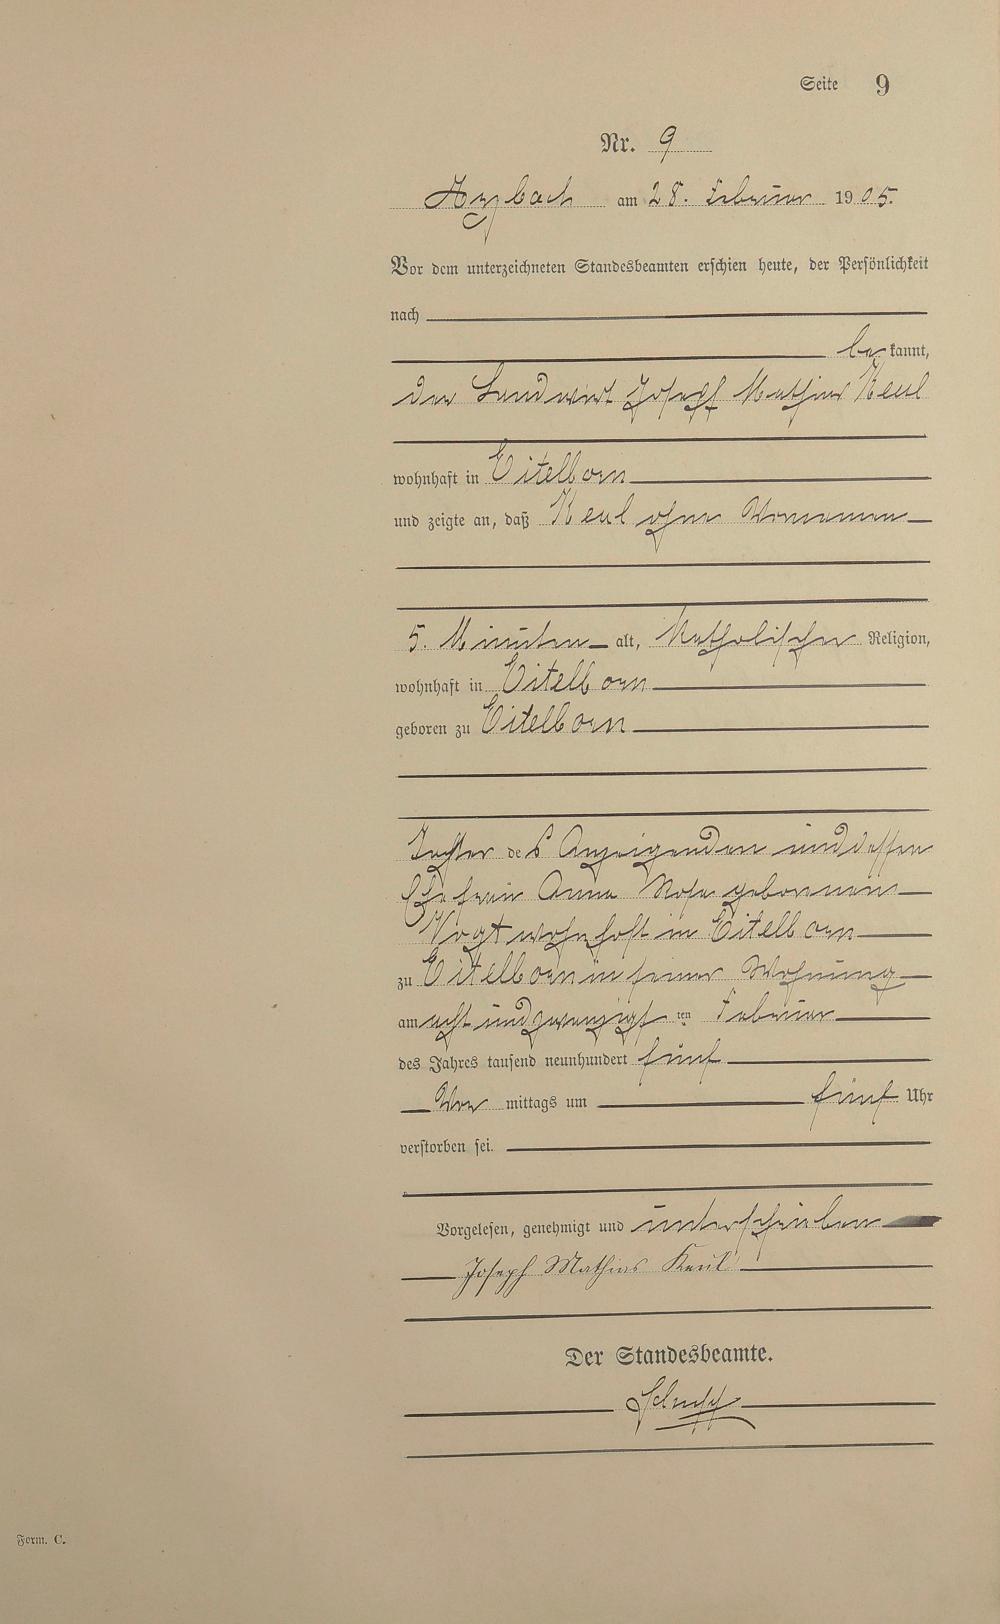 Seite 9
Nr. 9
Arzbach am 28. Februar 1905.
Vor dem unterzeichneten Standesbeamten erschien heute, der Persönlichkeit
nach
bekannt,
der Landwirt Josef Mathias Keul
wohnhaft in Eitelborn
und zeigte an, daß Keul ohne Vornamen
5. Minuten alt, katholischer Religion,
wohnhaft in Eitelborn
geboren zu Eitelborn
Tochter des Anzeigenden und dessen
Ehefrau Anna Rosa gebornen
Vogt wohnhaft in Eitelborn
zu Eitelborn in seiner Wohnung
am acht und zwanzigsten Februar
des Jahres tausend neunhundert fünf
Vor mittags um fünf Uhr
verstorben sei.
Vorgelesen, genehmigt und unterschrieben
Joseph Mathias Keul
Der Standesbeamte.
Form. C.